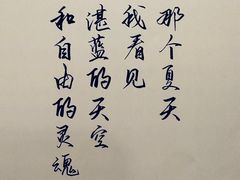 那个夏天
我看见
湛蓝的天空
和自由的灵魂